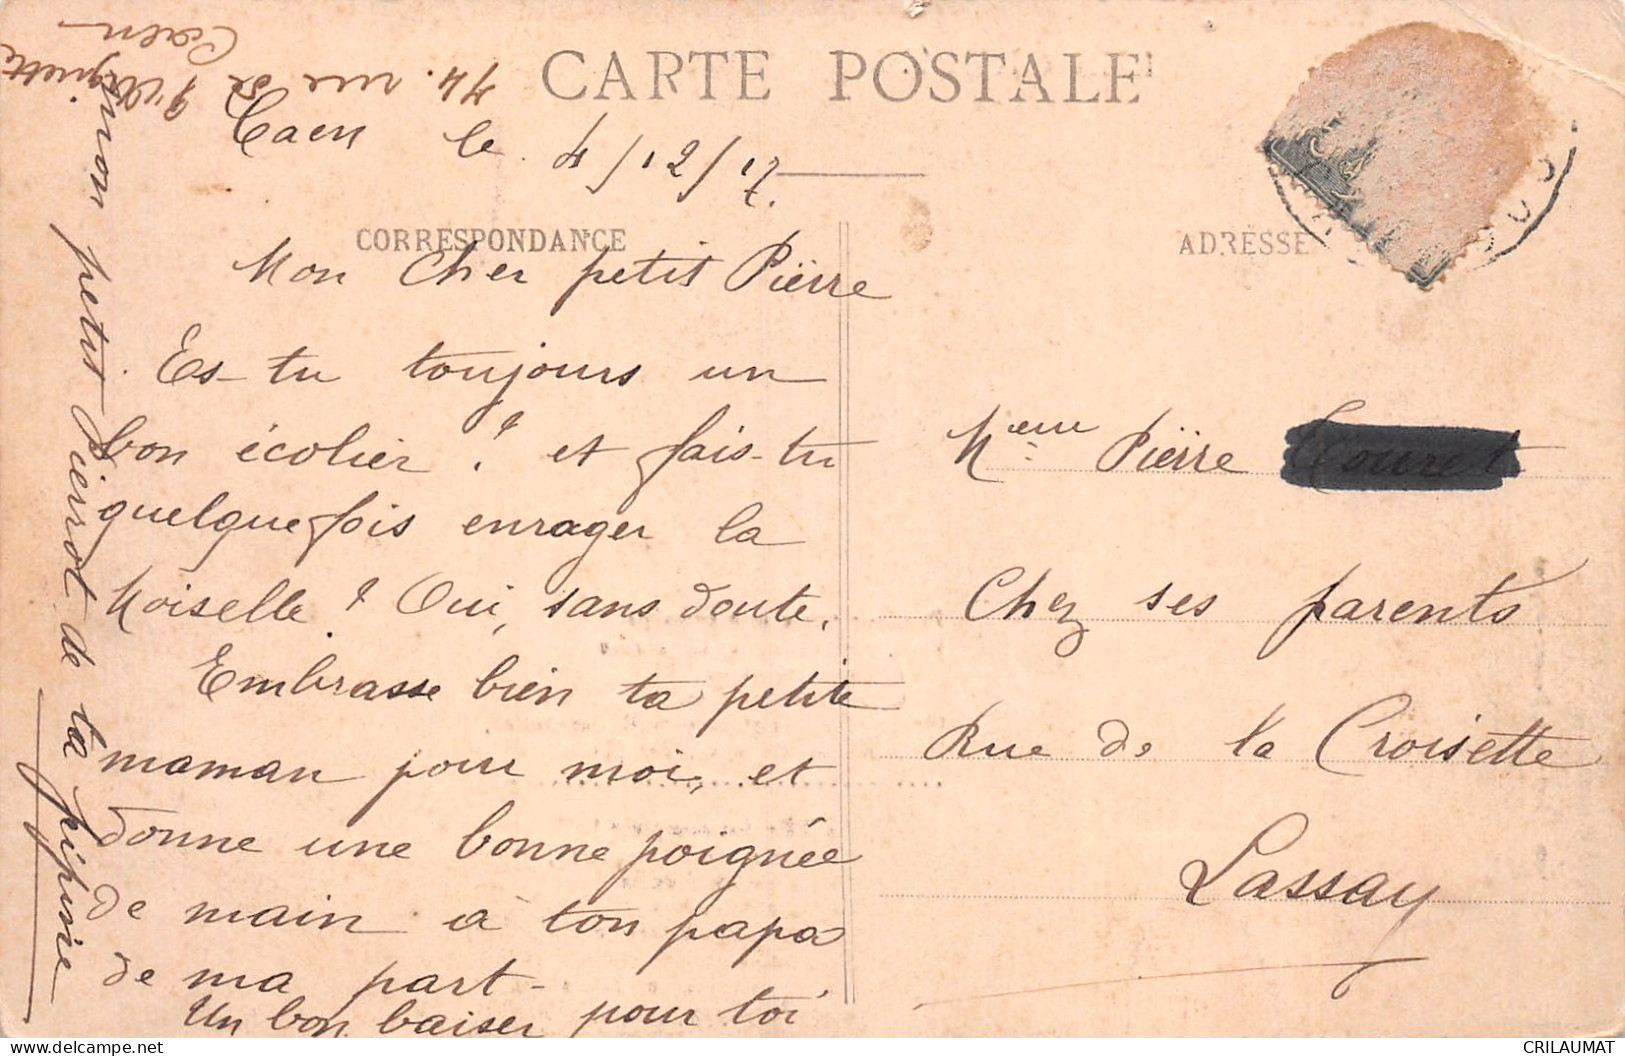 CARTE POSTALE
74. rue St
Caen
Caen le 4/12/17.
CORRESPONDANCE
ADRESSE
Mon Cher petit Piërre
Es-tu toujours un
bon écolier ? et fais-tu
quelquefois enrager la
Moiselle ? Oui, sans doute.
Embrasse bien ta petite
maman pour moi, et
donne une bonne poignée
de main à ton papa
de ma part-
Un bon baiser pour toi
mon petit Pierrot de ta
Meur Piërre
Chez ses parents
Rue de la Croisette
Lassay
CRILAUMAT